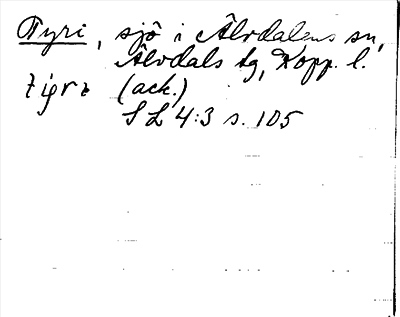 Tyri, sjö i Älvdalens sn,
Älvdals tg, Kopp. l.
(ack.)
SL 4:3 s. 105